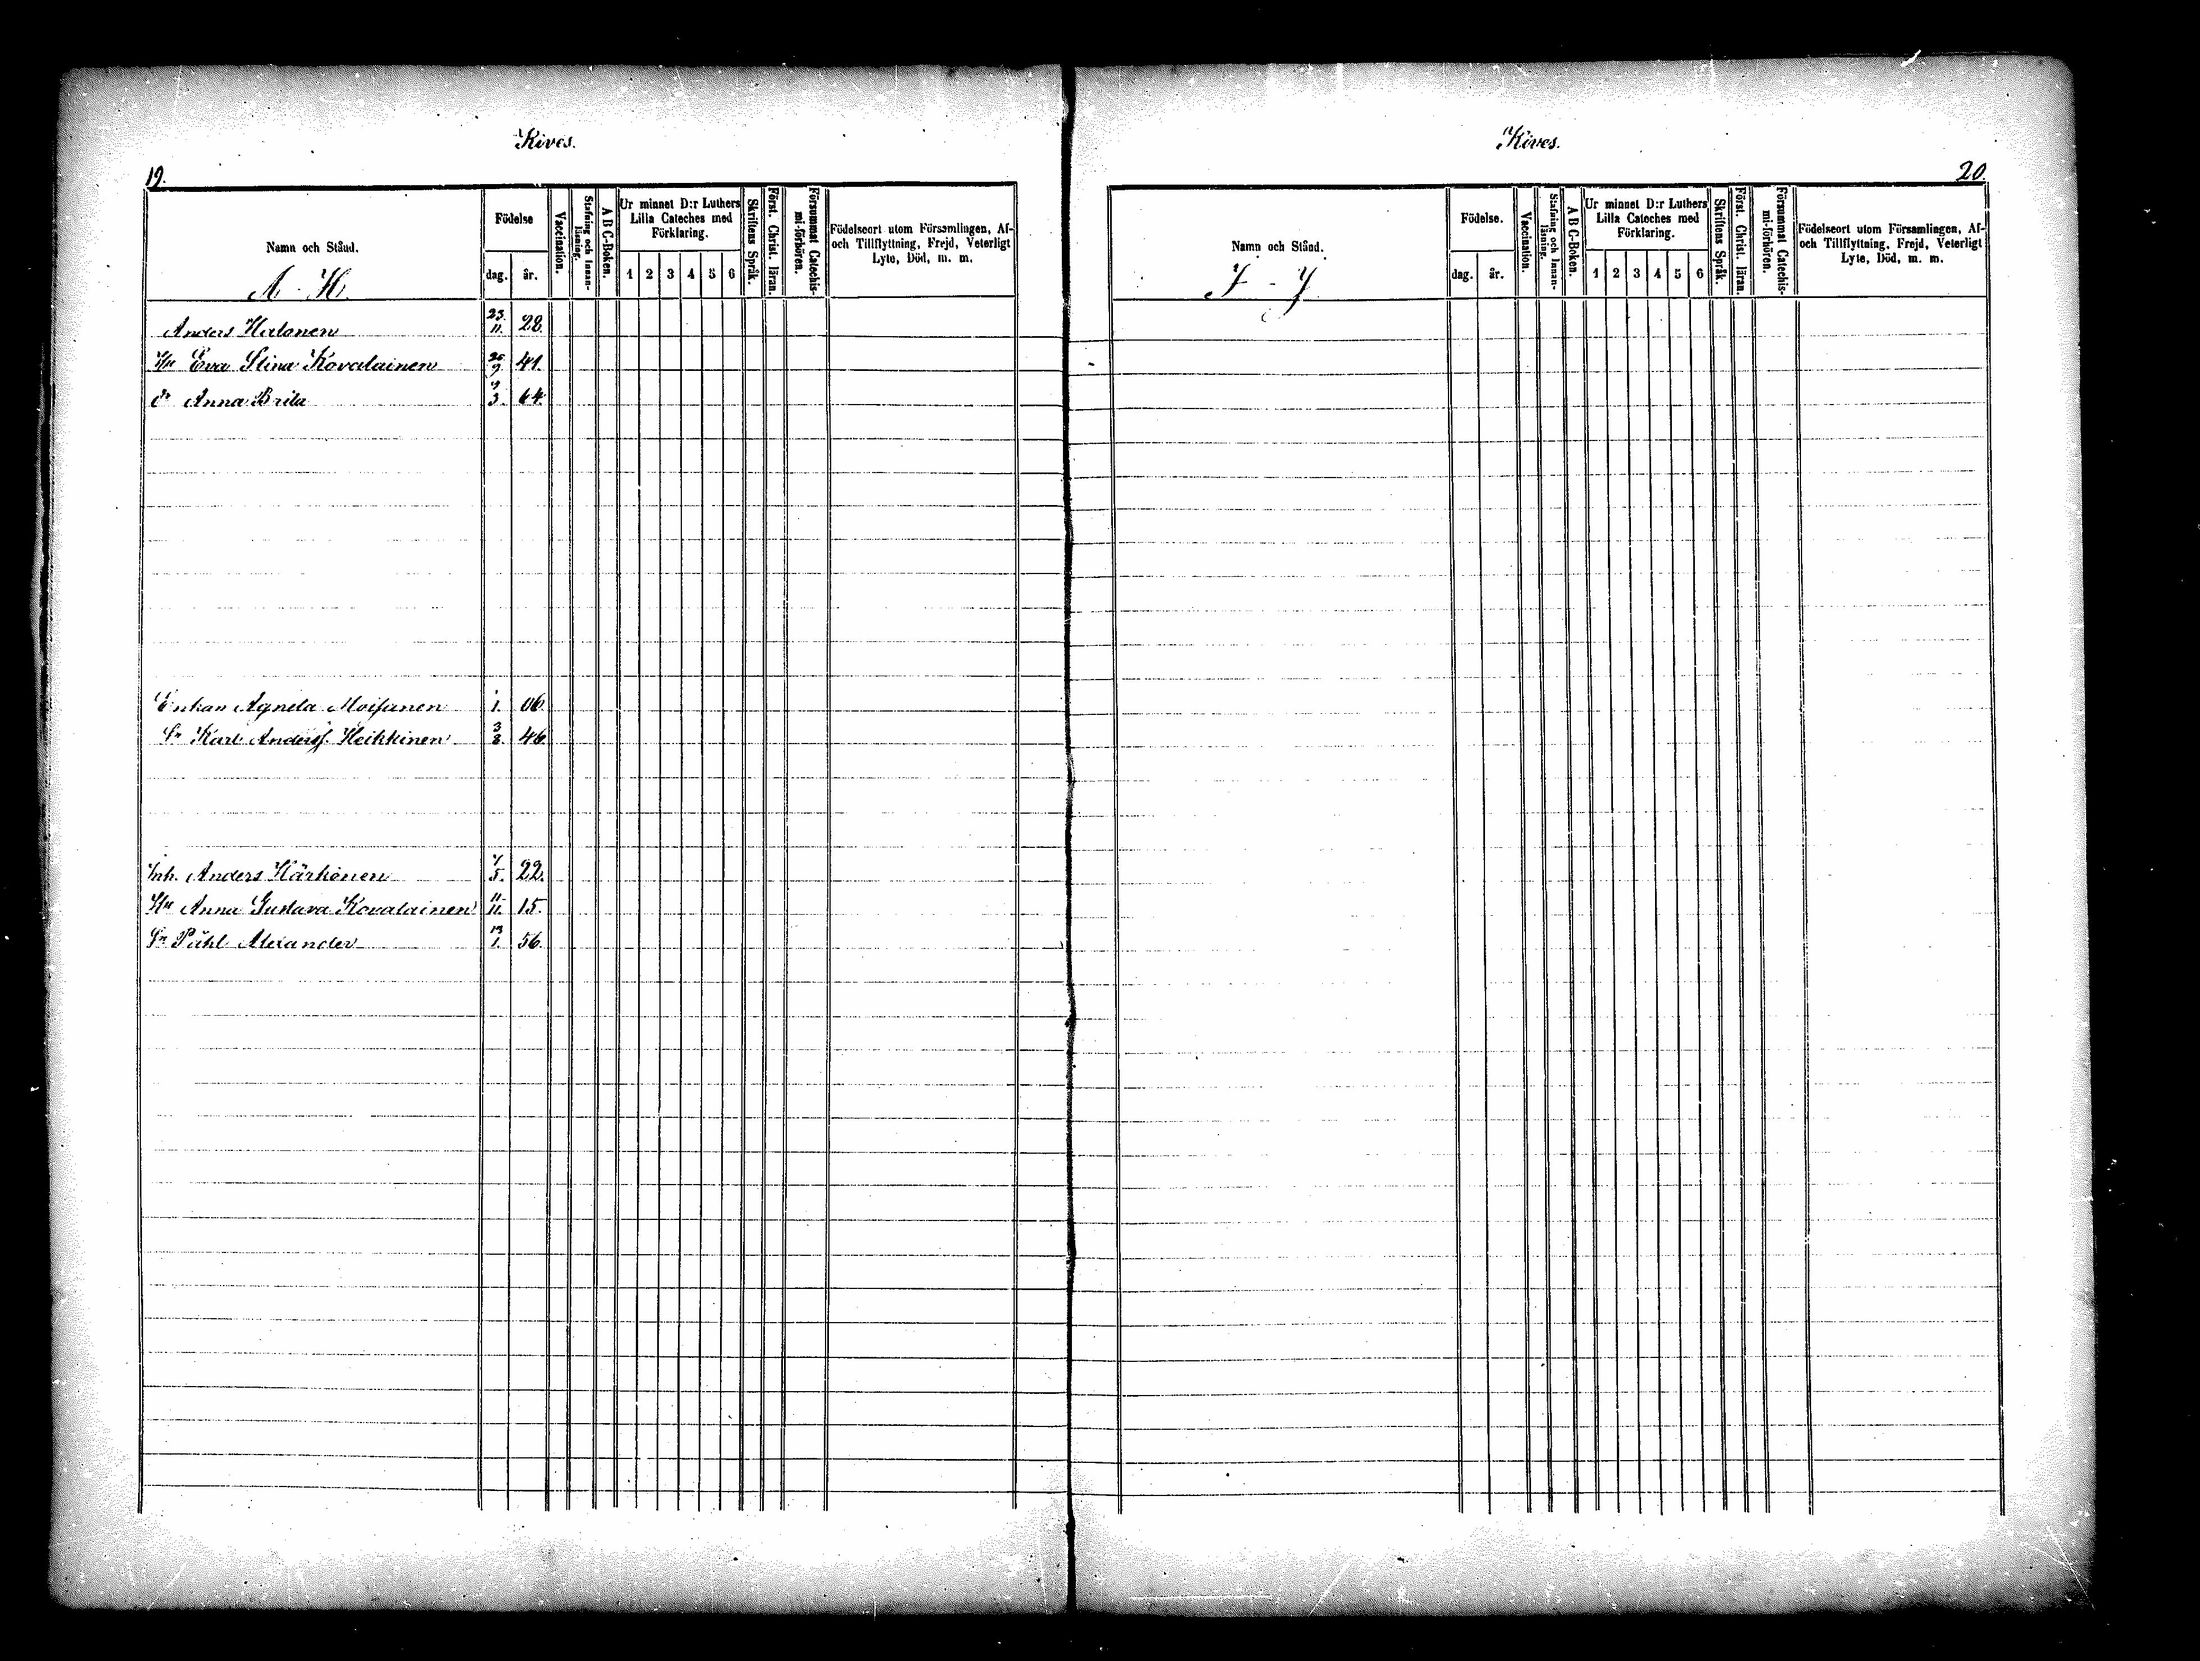 Kives.
19.
Namn och Stånd.
A - H.
Födelse
dag.
år.
Vaccination.
Stafning och Innan-
läsning.
A B C-Boken.
Ur minnet D:r Luthers
Lilla Cateches med
Förklaring.
1 2 3 4 5 6
Skriftens Språk.
Först. Christ. läran.
Försummat Catechis-
mi-förhören.
Födelseort utom Församlingen, Af-
och Tillflyttning, Frejd, Veterligt
Lyte, Död, m. m.
Anders Halonen 23. 11. 28.
Hu Eva Stina Kovalainen 41.
dr Anna Brita 3. 64.
Enkan Agneta Moisanen 1. 06.
Sn Karl Anderss. Heikkinen 3 8. 46.
Inh. Anders Härkönen 5. 22.
Hu Anna Gustava Kovalainen 11. 11. 15.
Sn Påhl Alexander 13 1. 56.
Kives.
20.
Namn och Stånd.
I - Y
Födelse.
dag.
år.
Vaccination.
Stafning och Innan-
läsning.
A B C-Boken.
Ur minnet D:r Luthers
Lilla Cateches med
Förklaring.
1 2 3 4 5 6
Skriftens Språk.
Först. Christ. läran.
Försummat Catechis-
mi-förhören.
Födelseort utom Församlingen, Af-
och Tillflyttning, Frejd, Veterligt
Lyte, Död, m. m.